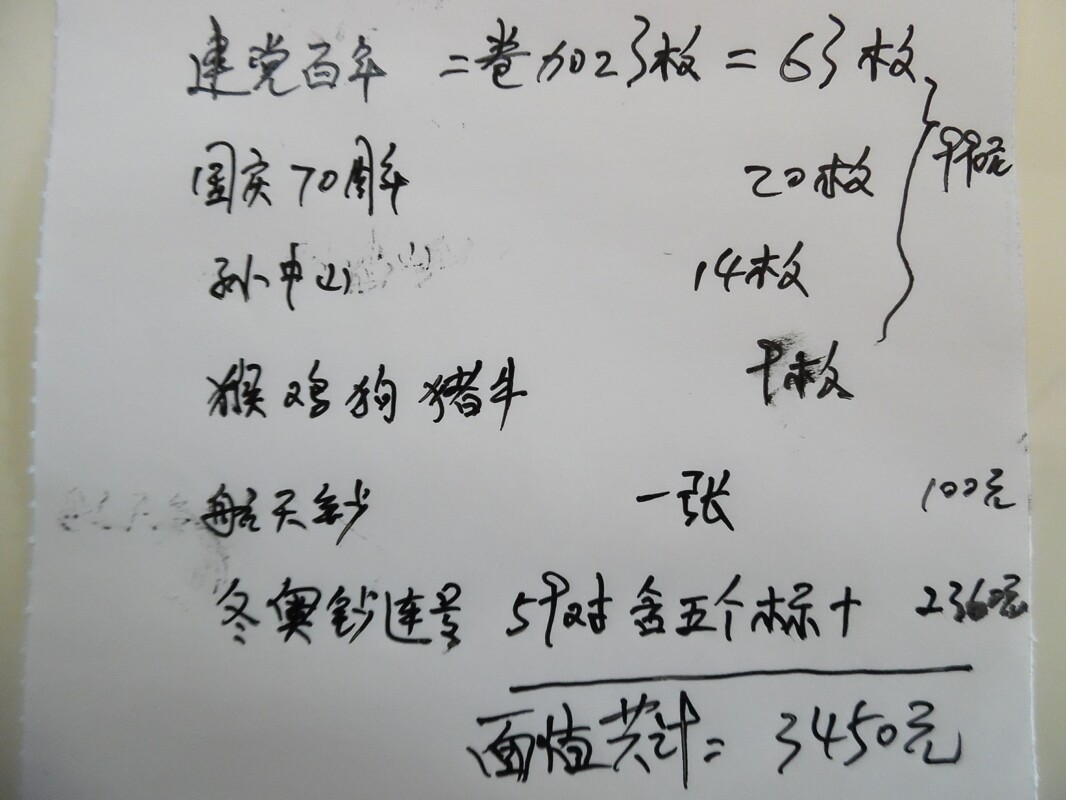 建党百年 二卷加23枚 = 63枚
国庆70周年 20枚 990元
孙中山 14枚
猴鸡狗猪牛 9枚
航天钞 一张 100元
冬奥钞连号 59对含五个标十 2360元
面值共计 = 3450元